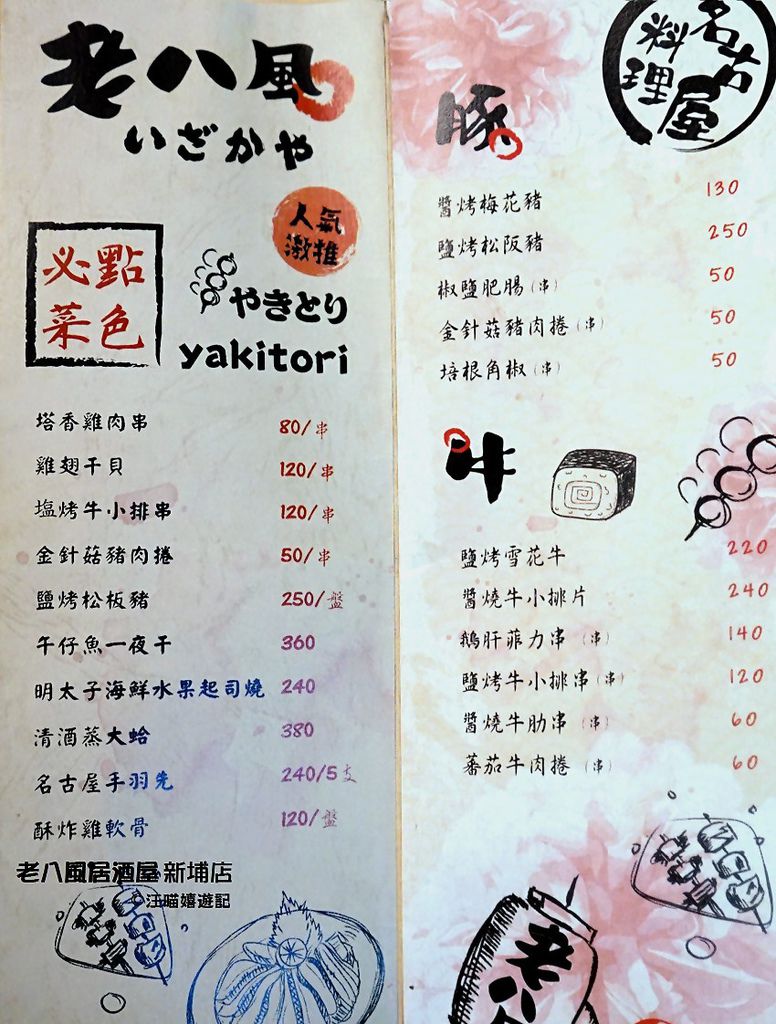 老八風
いざかや
人氣
激推
必點
菜色
やきとり
yakitori
塔香雞肉串 80/串
雞翅干貝 120/串
塩烤牛小排串 120/串
金針菇豬肉捲 50/串
鹽烤松板豬 250/盤
午仔魚一夜干 360
明太子海鮮水果起司燒 240
清酒蒸大蛤 380
名古屋手羽先 240/5支
酥炸雞軟骨 120/盤
老八風居酒屋 新埔店
汪喵嬉遊記
名古屋
料理
豚
醬烤梅花豬 130
鹽烤松阪豬 250
椒鹽肥腸(串) 50
金針菇豬肉捲(串) 50
培根角椒(串) 50
牛
鹽烤雪花牛 220
醬燒牛小排片 240
鵝肝菲力串(串) 140
鹽烤牛小排串(串) 120
醬燒牛肋串(串) 60
蕃茄牛肉捲(串) 60
老八